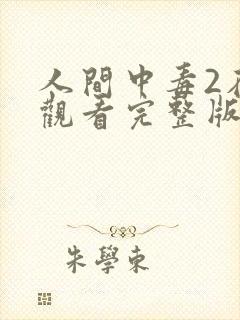 人間中毒2在
觀看完整版
朱學東